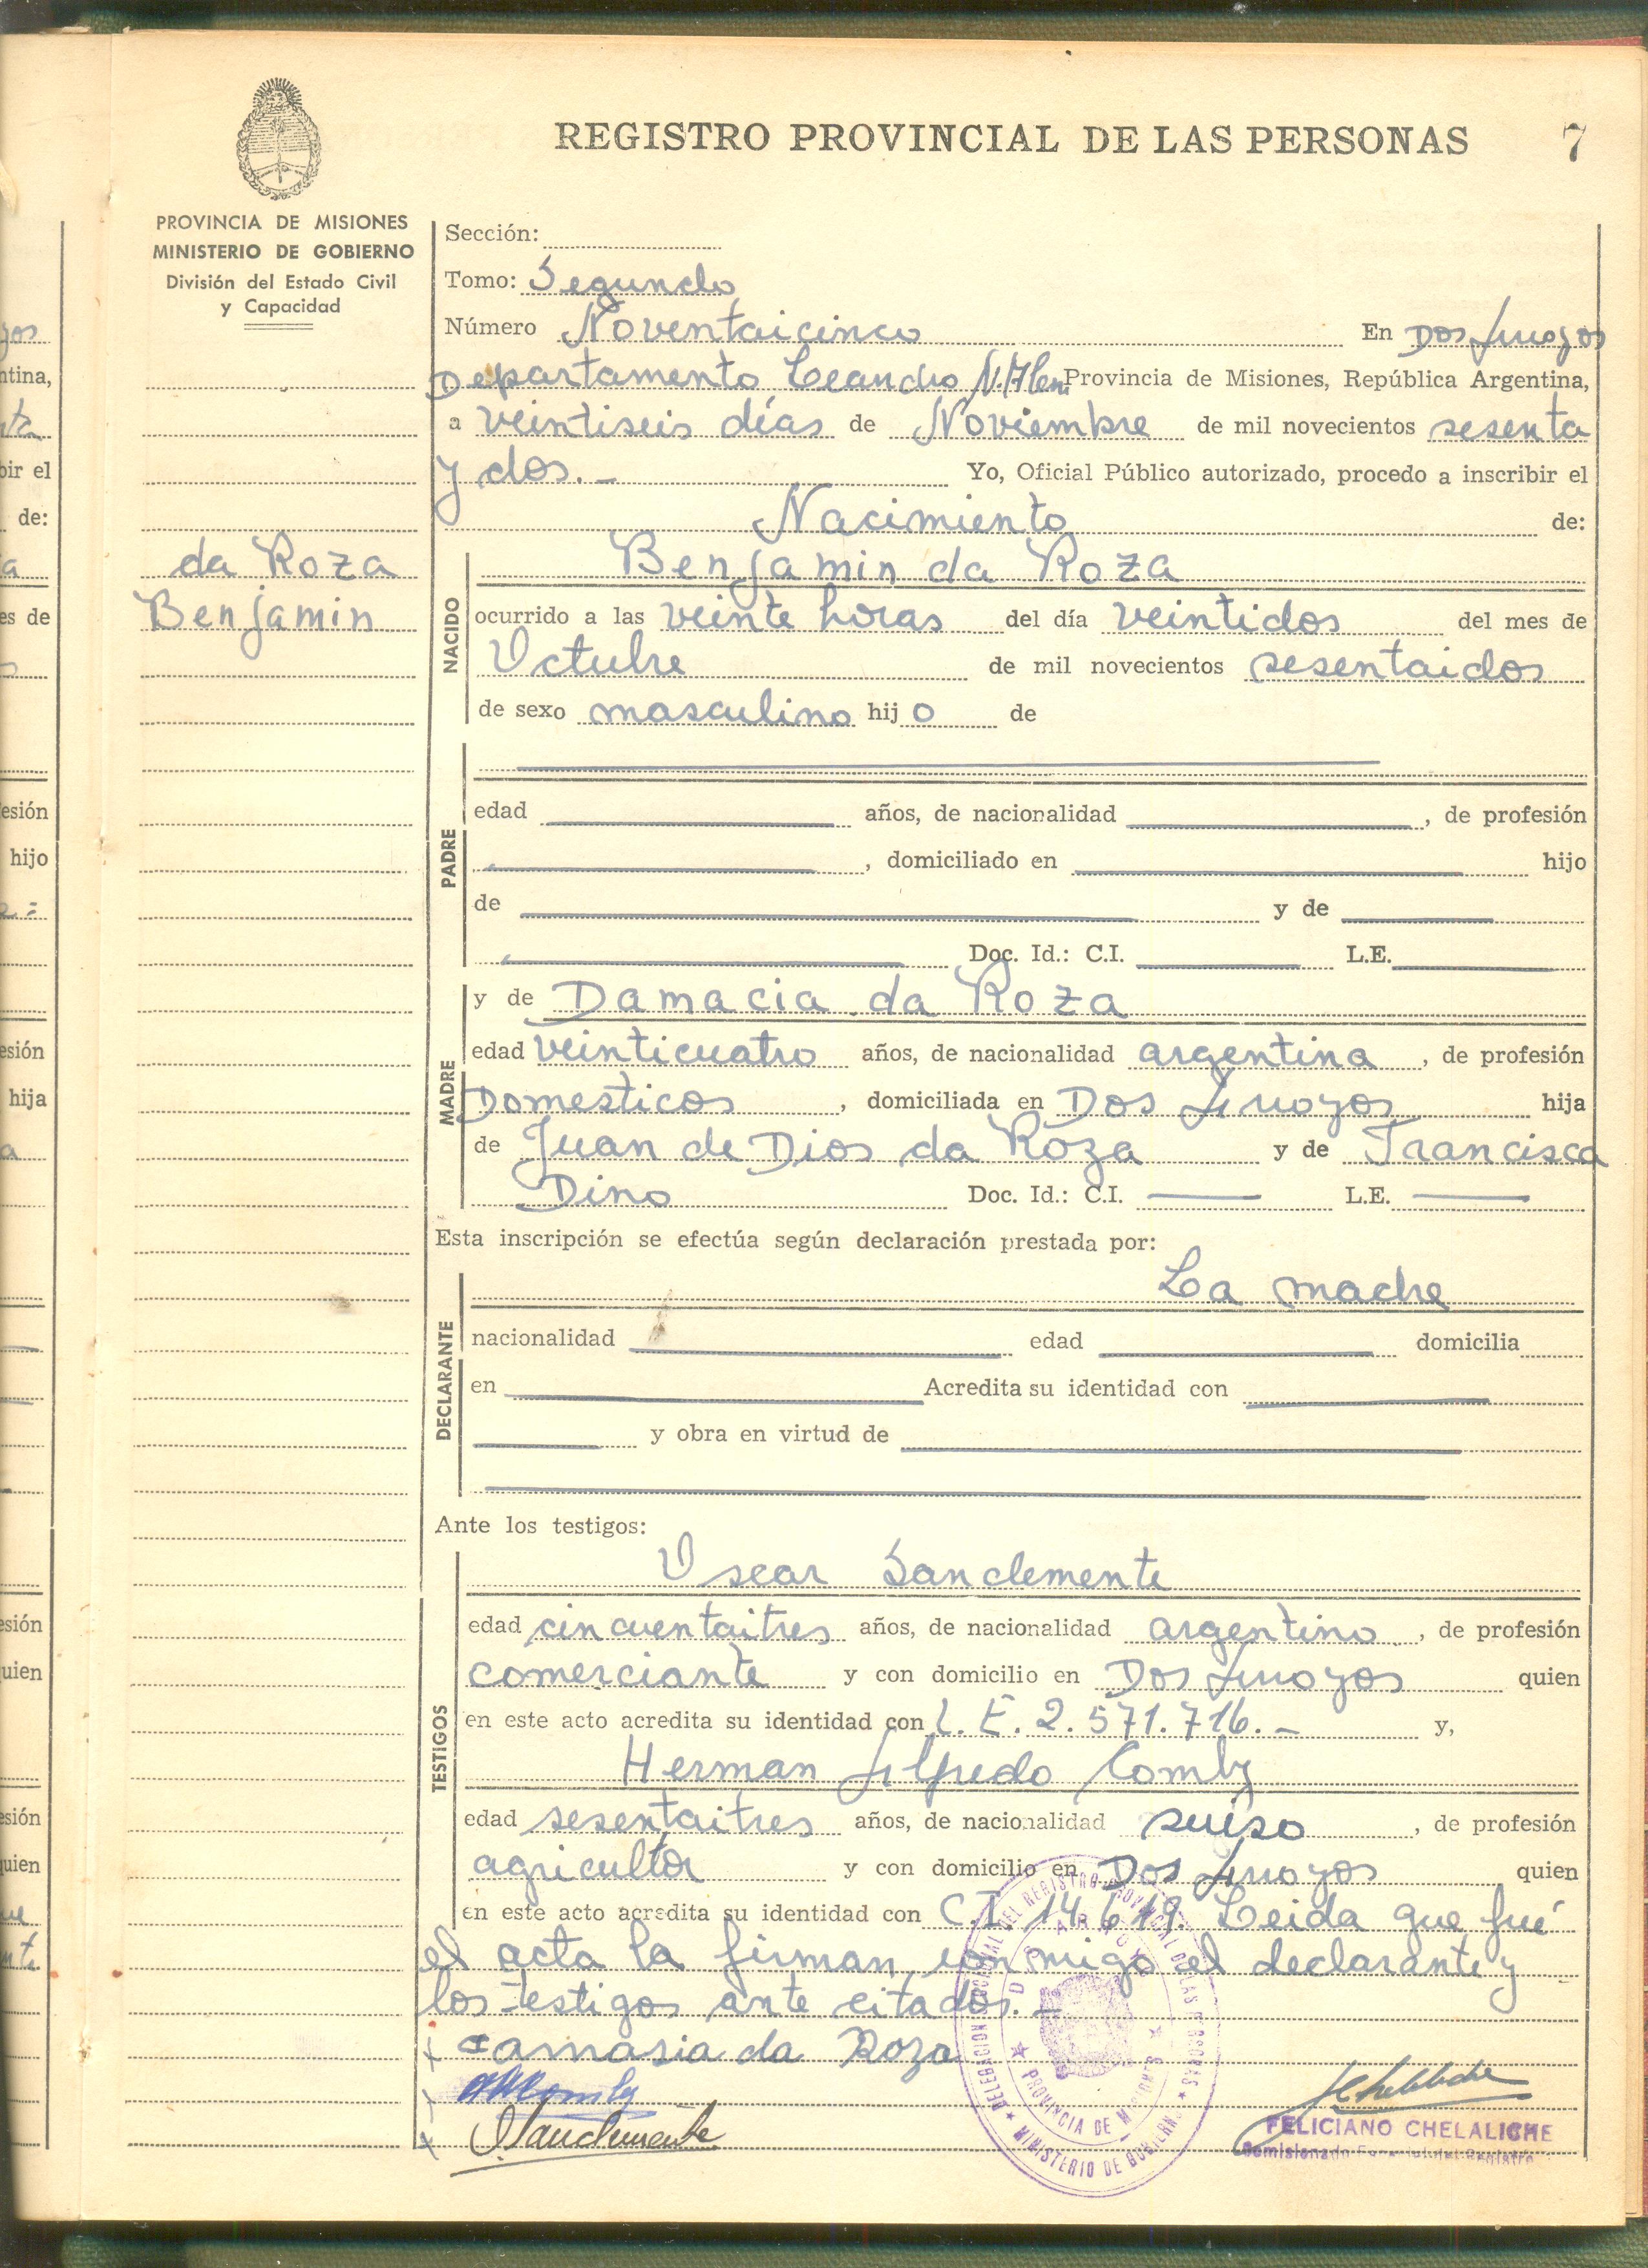 REGISTRO PROVINCIAL DE LAS PERSONAS 7
PROVINCIA DE MISIONES
MINISTERIO DE GOBIERNO
División del Estado Civil
y Capacidad
da Roza
Benjamin
Sección:
Tomo: Segundo
Número Noventaicinco En Dos Arroyos
Departamento Leandro N. Alem Provincia de Misiones, República Argentina,
a veintiseis días de Noviembre de mil novecientos sesenta
y dos.- Yo, Oficial Público autorizado, procedo a inscribir el
Nacimiento de:
NACIDO
Benjamin da Roza
ocurrido a las veinte horas del día veintidos del mes de
Octubre de mil novecientos sesentaidos
de sexo masculino hijo de
PADRE
edad años, de nacionalidad , de profesión
, domiciliado en hijo
de y de
Doc. Id.: C.I. L.E.
MADRE
y de Damacia da Roza
edad veinticuatro años, de nacionalidad argentina, de profesión
Domesticos, domiciliada en Dos Arroyos hija
de Juan de Dios da Roza y de Francisca
Dino Doc. Id.: C.I. L.E.
Esta inscripción se efectúa según declaración prestada por:
DECLARANTE
La madre
nacionalidad edad domicilia
en Acredita su identidad con
y obra en virtud de
Ante los testigos:
TESTIGOS
Oscar Sanclemente
edad cincuentaitres años, de nacionalidad argentino, de profesión
comerciante y con domicilio en Dos Arroyos quien
en este acto acredita su identidad con L.E. 2.571.716.- y,
Herman Alfredo Comby
edad sesentaitres años, de nacionalidad suiso, de profesión
agricultor y con domicilio en Dos Arroyos quien
en este acto acredita su identidad con C.I. 14.619. Leida que fué
el acta la firman, conmigo el declarante y
los testigos ante citados.-
damasia da Roza
FELICIANO CHELALICHE
DOS ARROYOS
PROVINCIA DE MISIONES
MINISTERIO DE GOBIERNO